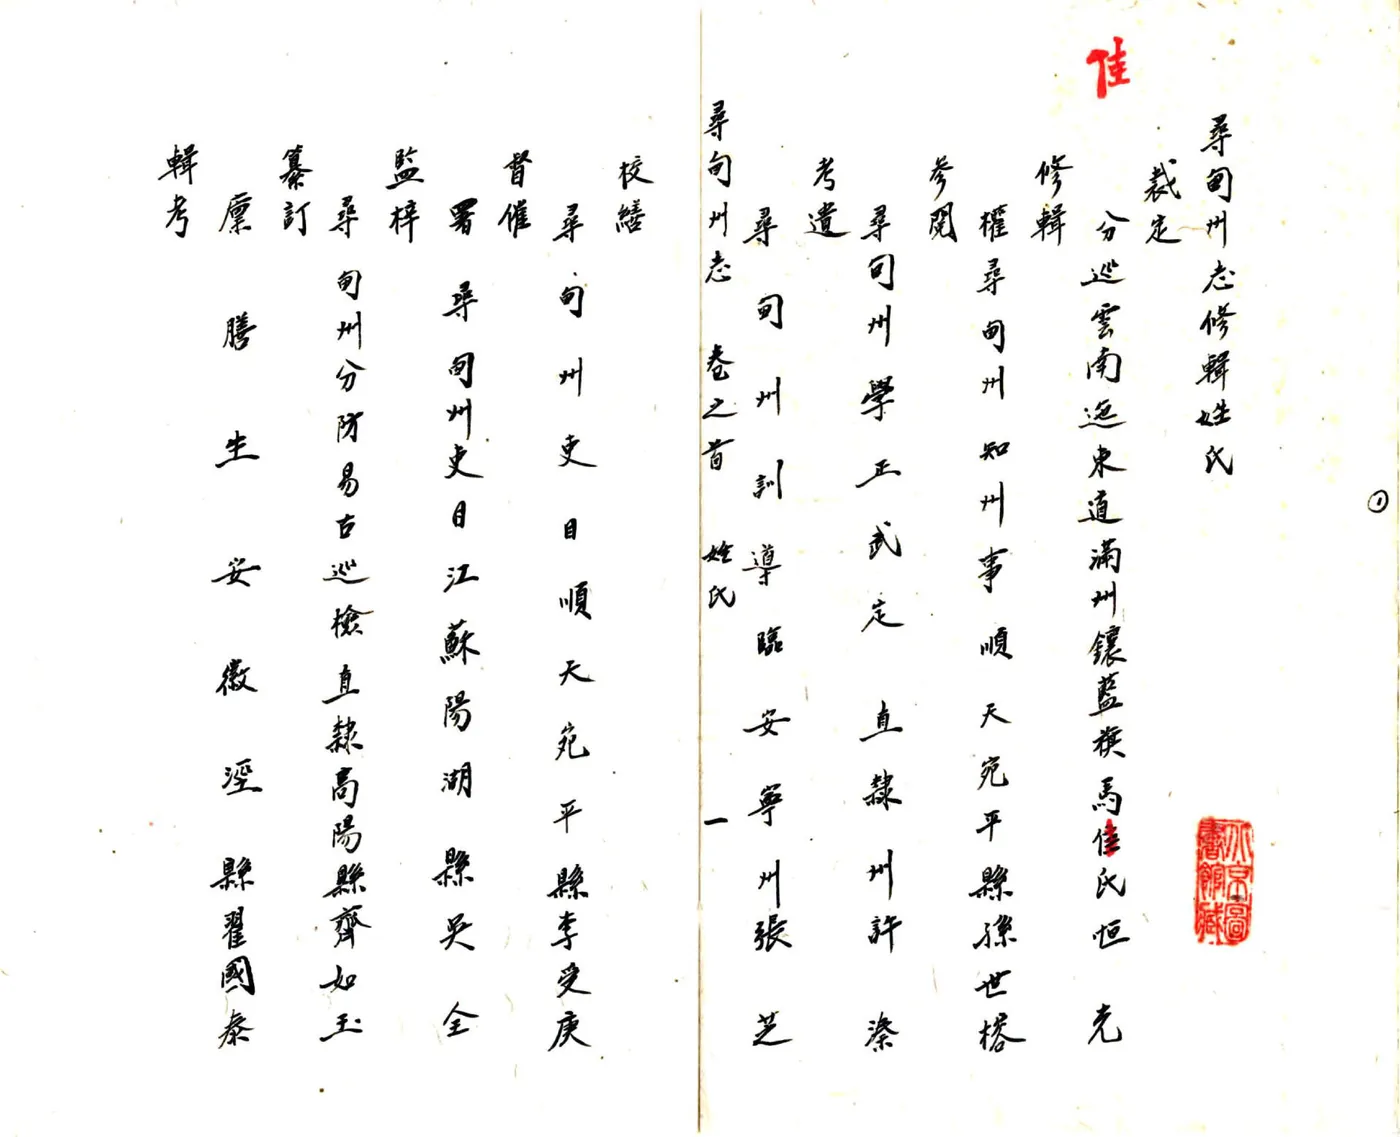 佳
尋甸州志修輯姓氏
裁定
分巡雲南迤東道滿州鑲藍旗馬佳氏恒光
修輯
權尋甸州知州事順天宛平縣孫世榕
參閱
尋甸州學正武定直隸州許滐
考遺
尋甸州訓導臨安寧州張芝
尋甸州志 卷之首 姓氏 一
校繕
尋甸州吏目順天宛平縣李受庚
督催
署尋甸州吏目江蘇陽湖縣吳全
監梓
尋甸州分防易古巡檢直隸高陽縣齊如玉
纂訂
廩膳生安徽涇縣翟國泰
輯考
①
北京圖書館藏